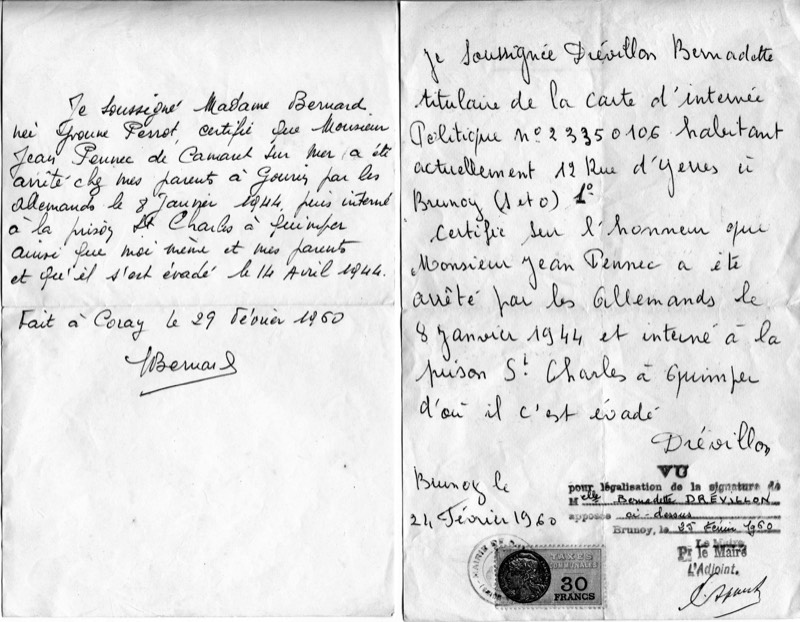 Je soussigné Madame Bernard
née Yvonne Perrot, certifie que Monsieur
Jean Pennec de Camaret sur mer, a été
arrêté chez mes parents à Gourin par les
allemands le 8 janvier 1944, puis interné
à la prison St Charles à Quimper
ainsi que moi même et mes parents
et qu'il s'est évadé le 14 Avril 1944.
Fait à Coray le 29 Février 1960
YBernard
Je soussignée Drévillon Bernadette
titulaire de la carte d'internée
Politique n° 2 3350106 habitant
actuellement 12 Rue d'Yerres à
Brunoy (S et O) 1°
certifie sur l'honneur que
Monsieur Jean Pennec a été
arrêté par les Allemands le
8 janvier 1944 et interné à la
prison St Charles à Quimper
d'où il c'est évadé
Drévillon
Brunoy le
24 Février 1960
VU
pour légalisation de la signature de
Melle Bernadette DRÉVILLON
apposée ci-dessus
Brunoy, le 25 Février 1960
Le Maire
Pr le Maire
L'Adjoint.
MAIRIE DE
TAXES
COMMUNALES
30
FRANCS